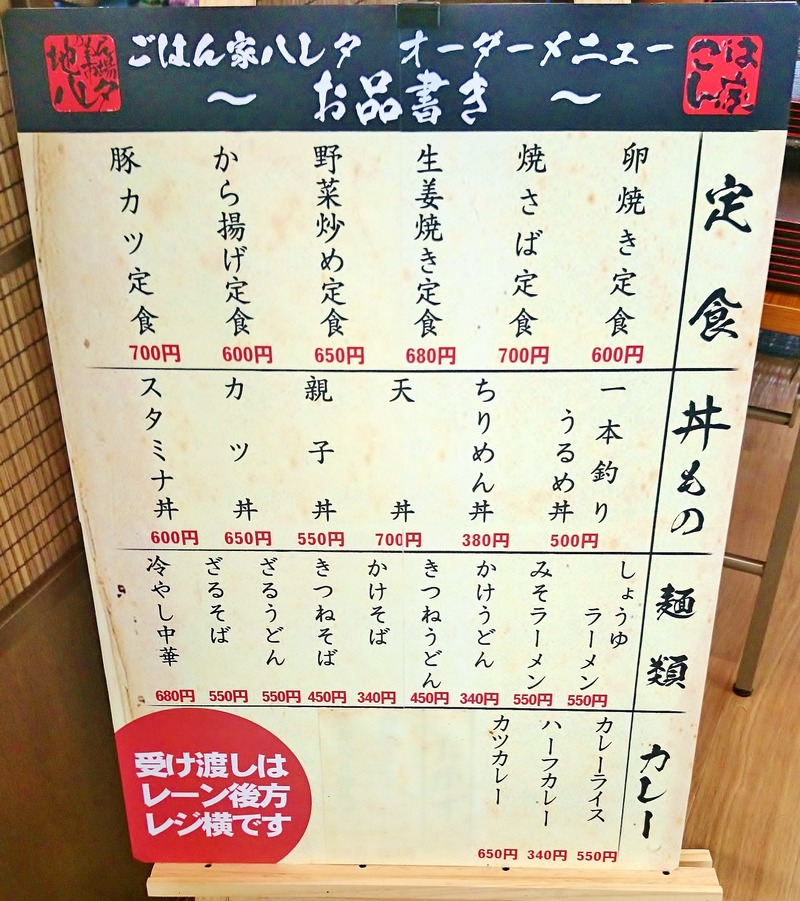 ごはん家ハレタ オーダーメニュー
～ お品書き ～
ごはん家
定食
卵焼き定食
600円
焼さば定食
700円
生姜焼き定食
680円
野菜炒め定食
650円
から揚げ定食
600円
豚カツ定食
700円
丼もの
一本釣り
うるめ丼
500円
ちりめん丼
380円
天丼
700円
親子丼
550円
カツ丼
650円
スタミナ丼
600円
麺類
しょうゆ
ラーメン
550円
みそラーメン
550円
かけうどん
340円
きつねうどん
450円
かけそば
340円
きつねそば
450円
ざるうどん
550円
ざるそば
550円
冷やし中華
680円
カレー
カレーライス
550円
ハーフカレー
340円
カツカレー
650円
受け渡しは
レーン後方
レジ横です